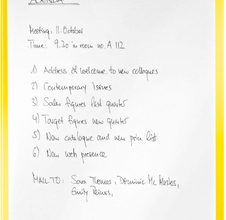 Agenda
Meeting: 11. October
Time: 9.30 in room no. A 112
1) Address of welcome to new colleagues
2) Contemporary Issues
3) Sales figures last quarter
4) Target figures new quarter
5) New catalogue and new price list
6) New web presence
MAIL TO: Sara Thomas, Dominic Mc
Emily